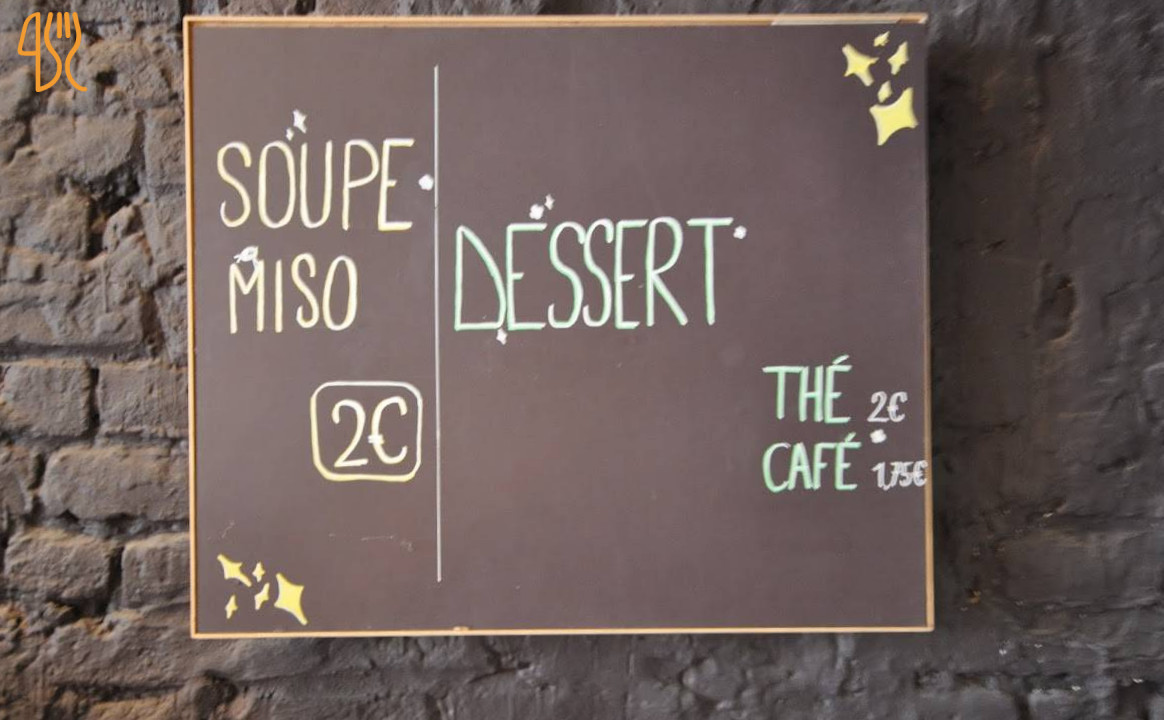 SOUPE
MISO
2€
DESSERT
THÉ 2€
CAFÉ 1,75€